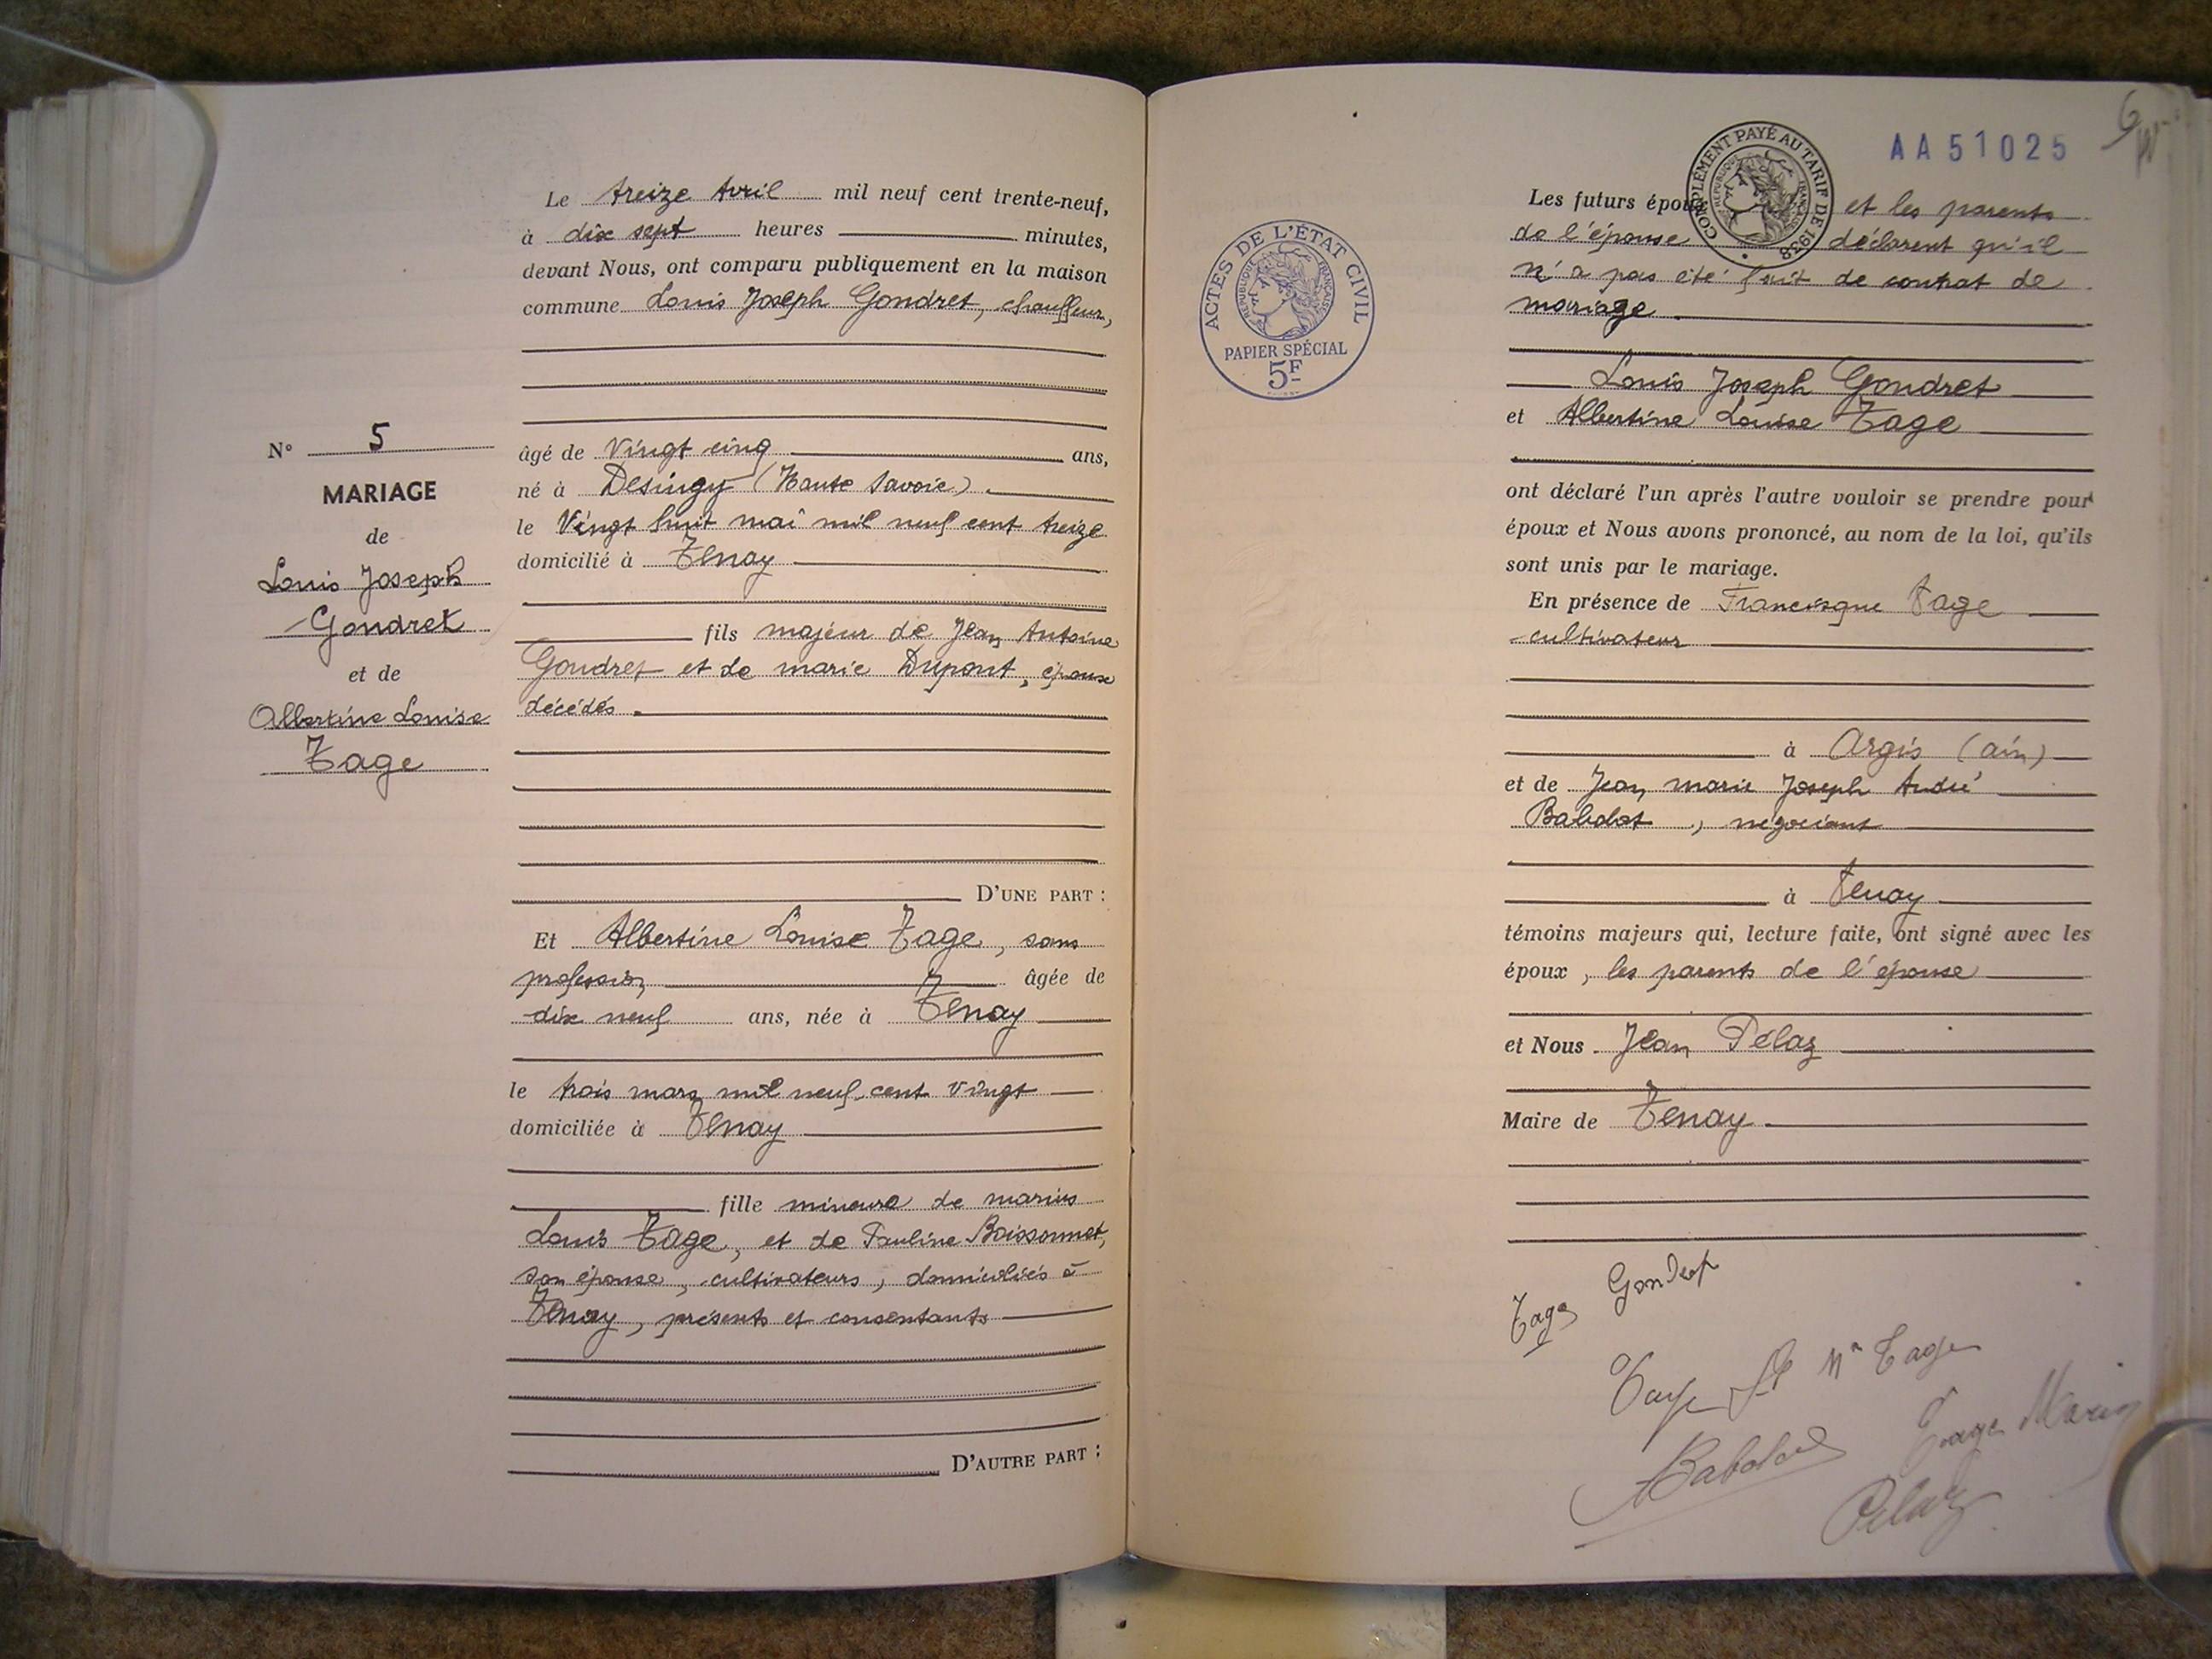 N° 5
MARIAGE
de
Louis Joseph
Gondret
et de
Albertine Louise
Tage
Le treize Avril mil neuf cent trente-neuf,
à dix sept heures minutes,
devant Nous, ont comparu publiquement en la maison
commune Louis Joseph Gondret, chauffeur,
âgé de Vingt cinq ans,
né à Desingy (Haute Savoie).
le Vingt huit mai mil neuf cent treize
domicilié à Tenay
fils majeur de Jean Antoine
Gondret et de marie Dupont, épouse
décédés.
D'UNE PART :
Et Albertine Louise Tage, sans
profession âgée de
dix neuf ans, née à Tenay
le trois mars mil neuf cent vingt
domiciliée à Tenay
fille mineure de marius
Louis Tage, et de Pauline Boissonnet,
son épouse, cultivateurs, domiciliés à
Tenay, présents et consentants
D'AUTRE PART :
ACTES DE L'ÉTAT CIVIL
RÉPUBLIQUE FRANÇAISE
PAPIER SPÉCIAL
5F
COMPLÉMENT PAYÉ AU TARIF DE 1938
RÉPUBLIQUE FRANÇAISE
AA51025
6
Les futurs époux et les parents
de l'épouse déclarent qu'il
n'a pas été fait de contrat de
mariage.
Louis Joseph Gondret
et Albertine Louise Tage
ont déclaré l'un après l'autre vouloir se prendre pour
époux et Nous avons prononcé, au nom de la loi, qu'ils
sont unis par le mariage.
En présence de Francisque Tage
cultivateur
à Argis (ain)
et de Jean marie Joseph André
Babolat, négociant
à Tenay
témoins majeurs qui, lecture faite, ont signé avec les
époux, les parents de l'épouse
et Nous Jean Pélaz
Maire de Tenay.
Tage Gondret
Tage Me Tage
Babolat Tage Marius
Pelaz